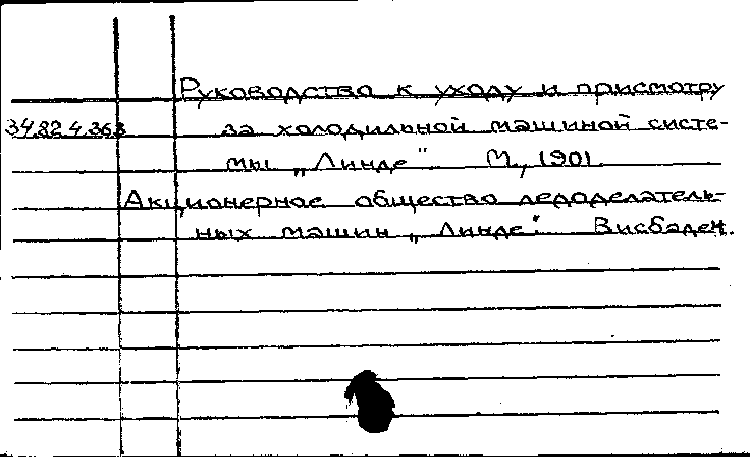 Руководство к уходу и присмотру
34.32.4.363 за холодильной машиной систе-
мы „Линде“ М., 1901.
Акционерное общество ледоделатель-
ных машин „Линде“. Висбаден.